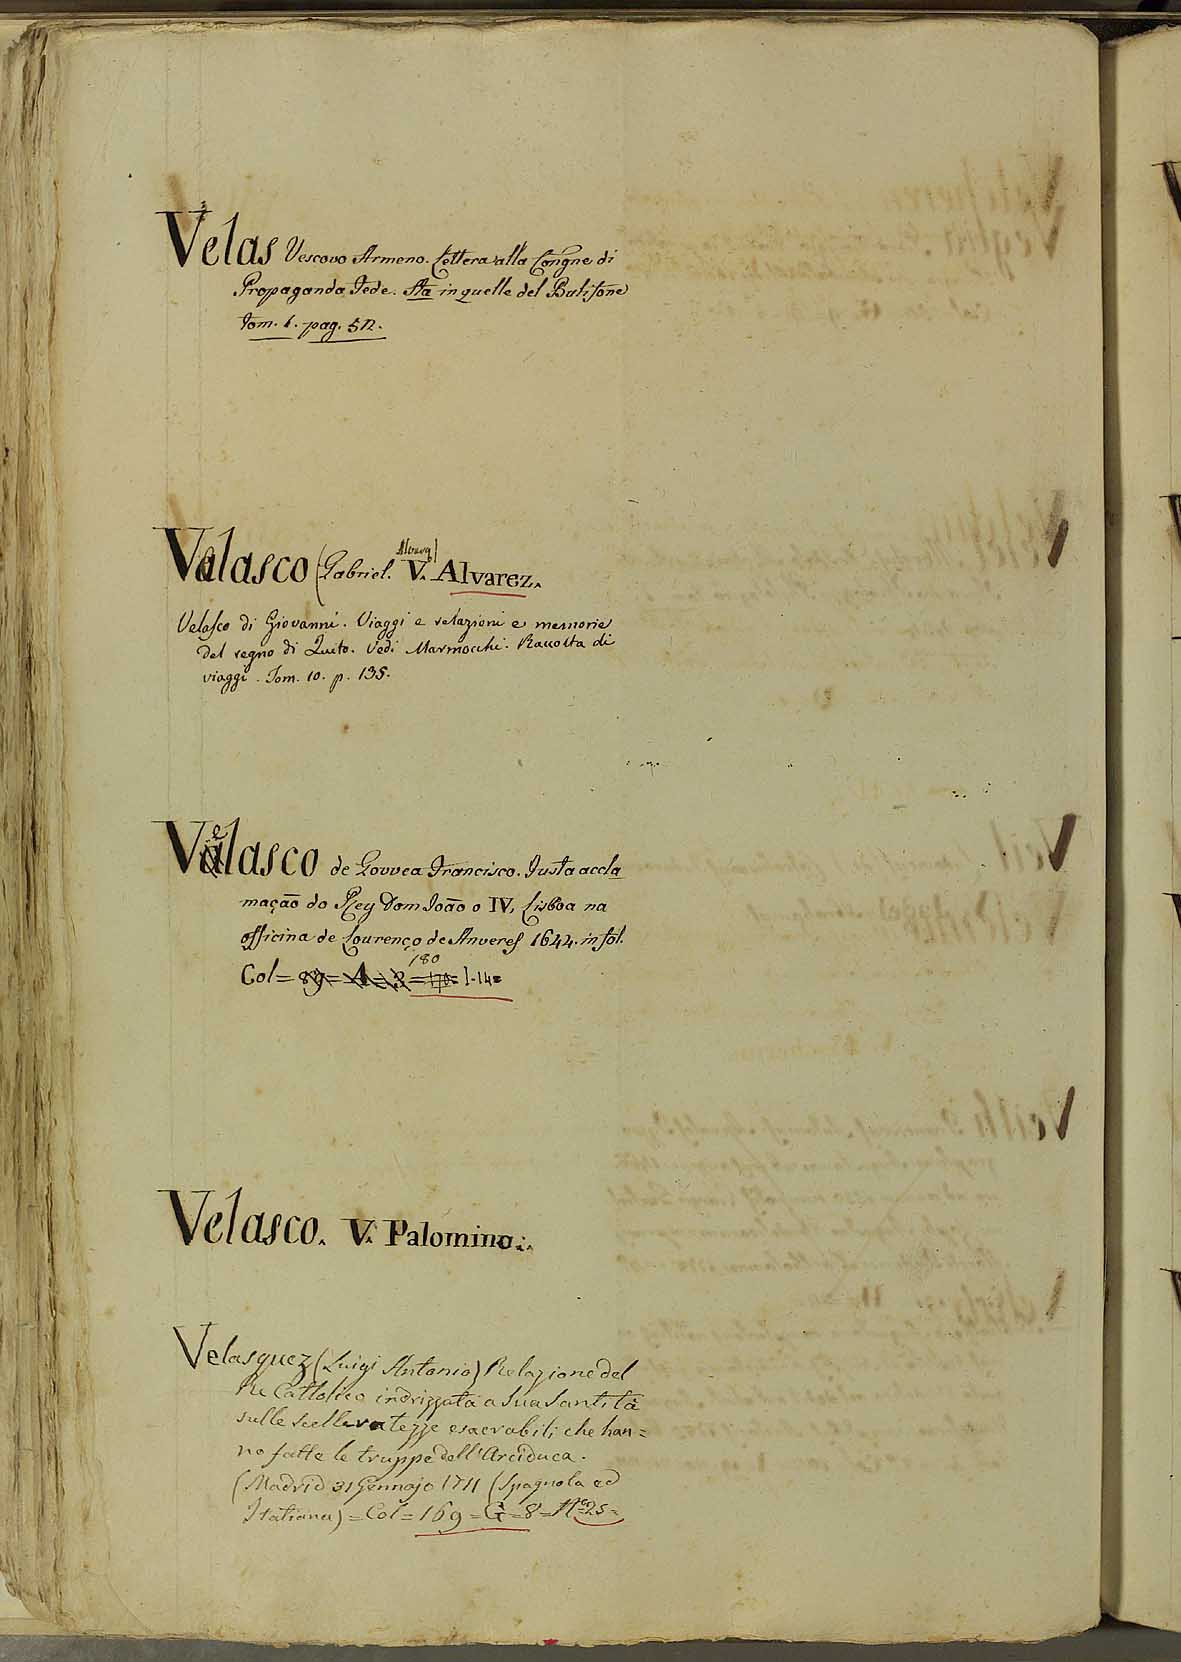 Velas Vescovo Armeno. Lettera alla Congne di
Propaganda Fede. Sta in quelle del Balisone
Tom. 1. pag. 512.
Velasco (Gabriel. Alvarez) V. Alvarez.
Velasco di Giovanni. Viaggi e relazioni e memorie
del regno di Quito. Vedi Marmocchi. Raccolta di
viaggi. Tom. 10. p. 135.
Velasco de Gouvea Francisco. Justa accla
mação do Rey Dom João o IV, Lisboa na
officina de Lourenço de Anveres 1644. in fol.
180
Col = 89 = A = 3 = = I. 14 =
Velasco. V. Palomino.
Velasquez (Luigi Antonio) Relazione del
Re Cattolico indrizzata a Sua Santità
sulle scelleratezze esacrabili che han=
no fatte le truppe dell'Arciduca.
(Madrid 31 Gennajo 1711 (Spagnola ed
Italiana) = Col = 169 = G = 8 = No 25 =